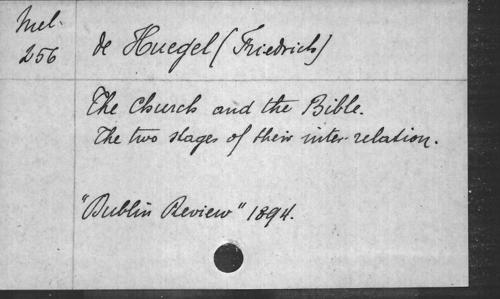 Mel.
256
de Huegel (Friedrich)
The Church and the Bible.
The two stages of their inter-relation.
"Dublin Review" 1894.